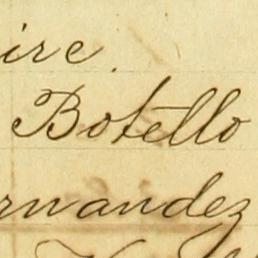 ire.
Botello
rnandez